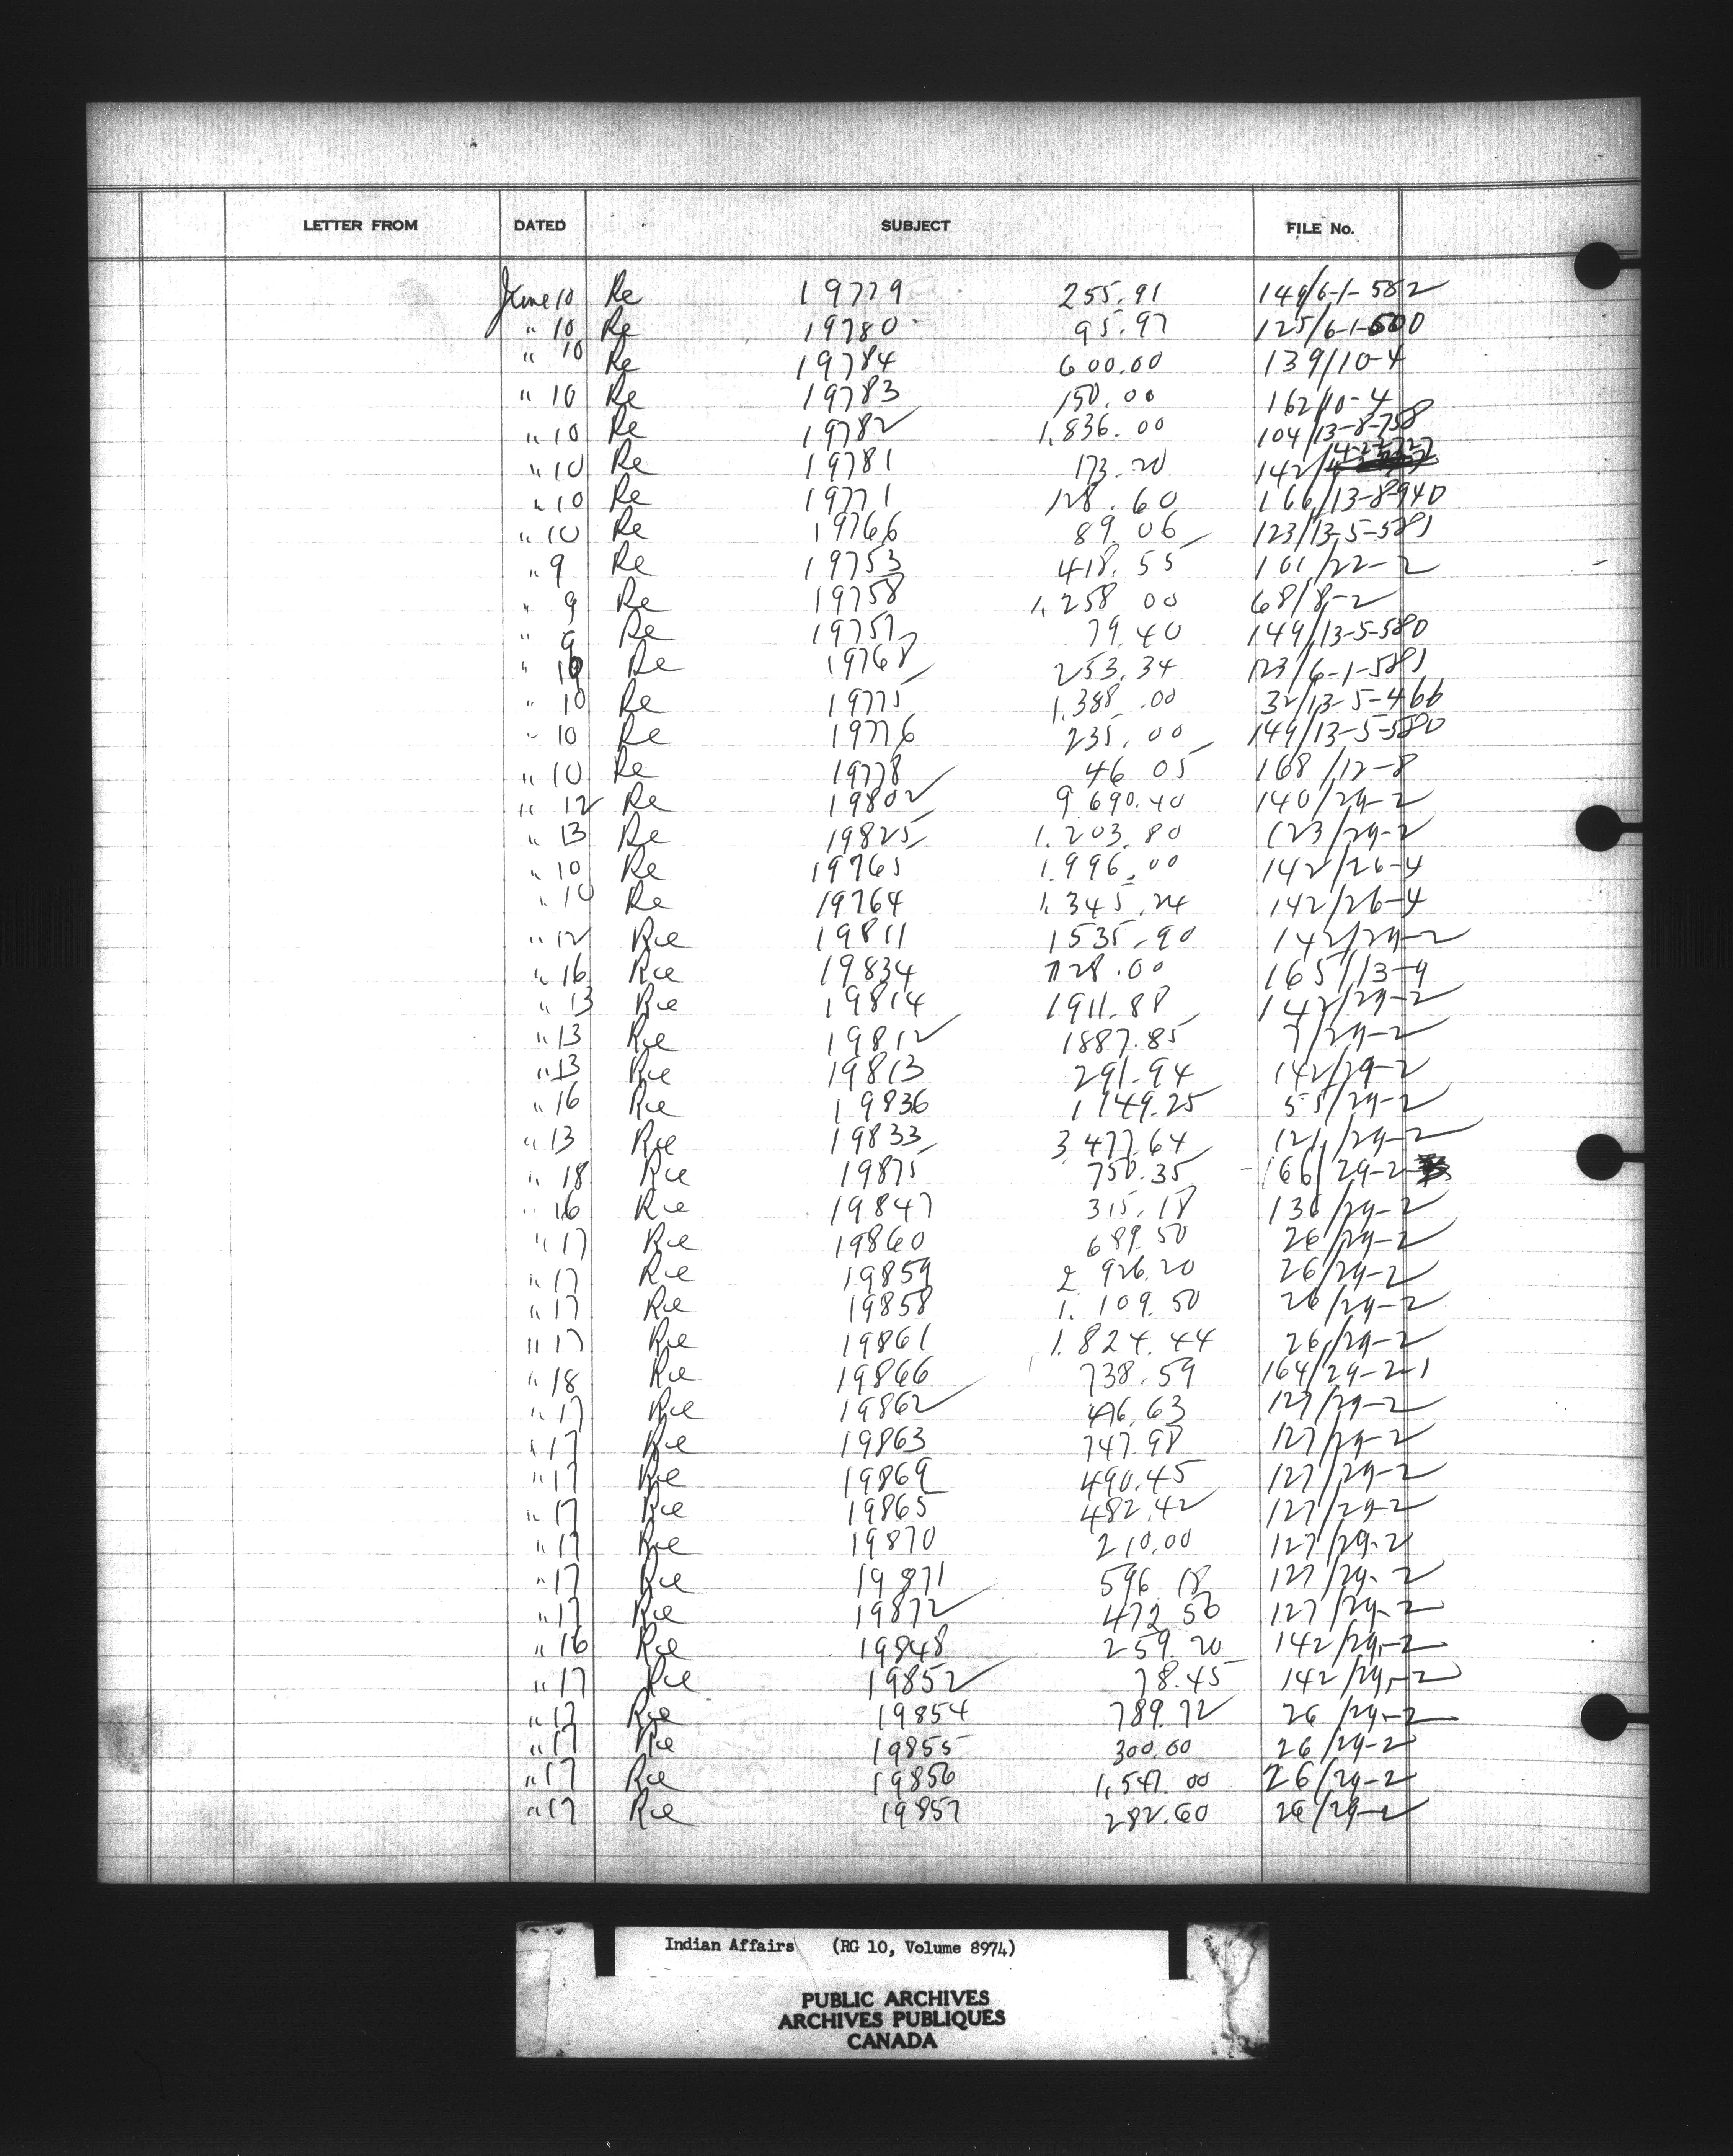 LETTER FROM DATED SUBJECT FILE No.
June 10 Re 19779 255.91 149/6-1-582
" 10 Re 19780 95.97 125/6-1-500
" 10 Re 19784 600.00 139/10-4
" 10 Re 19783 150.00 162/10-4
" 10 Re 19782 1,836.00 104/13-8-758
" 10 Re 19781 173.20 142/
" 10 Re 19771 128.60 166/13-8-940
" 10 Re 19766 89.06 123/13-5-581
" 9 Re 19753 418.55 101/22-2
" 9 Re 19758 1,258 00 68/8-2
" 9 Re 19757 79.40 149/13-5-580
" 10 Re 19768 253.34 123/6-1-581
" 10 Re 19775 1,388.00 32/13-5-466
" 10 Re 19776 235.00 149/13-5-580
" 10 Re 19778 46 05 168/12-8
" 12 Re 19802 9 690.40 140/29-2
" 13 Re 19825 1.203.80 123/29-2
" 10 Re 19765 1.996.00 142/26-4
" 10 Re 19764 1.345.24 142/26-4
" 12 Rie 19811 1535.90 142/29-2
" 16 Rie 19834 728.00 165/13-9
" 13 Rie 19814 1911.88 142/29-2
" 13 Rie 19812 1887.85 7/29-2
" 13 Rie 19813 291.94 142/29-2
" 16 Rie 19836 1 149.25 55/29-2
" 13 Rie 19833 3 477.64 121/29-2
" 18 Rie 19875 750.35 166/29-2
" 16 Rie 19847 315.18 136/29-2
" 17 Rie 19860 689.50 26/29-2
" 17 Rie 19859 2 926.20 26/29-2
" 17 Rie 19858 1.109.50 26/29-2
" 17 Rie 19861 1.824.44 26/29-2
" 18 Rie 19866 738.59 164/29-2-1
" 17 Rie 19862 476.63 127/29-2
" 17 Rie 19863 747.98 127/29-2
" 17 Rie 19869 490.45 127/29-2
" 17 Rie 19865 482.42 127/29-2
" 17 Rie 19870 210.00 127/29-2
" 17 Rie 19871 596.18 127/29-2
" 17 Rie 19872 472 50 127/29-2
" 16 Rie 19848 259.20 142/29-2
" 17 Rie 19852 78.45 142/29-2
" 17 Rie 19854 789.72 26/29-2
" 17 Rie 19855 300.00 26/29-2
" 17 Rie 19856 1,547.00 26/29-2
" 17 Rie 19857 282.60 26/29-2
Indian Affairs (RG 10, Volume 8974)
PUBLIC ARCHIVES
ARCHIVES PUBLIQUES
CANADA